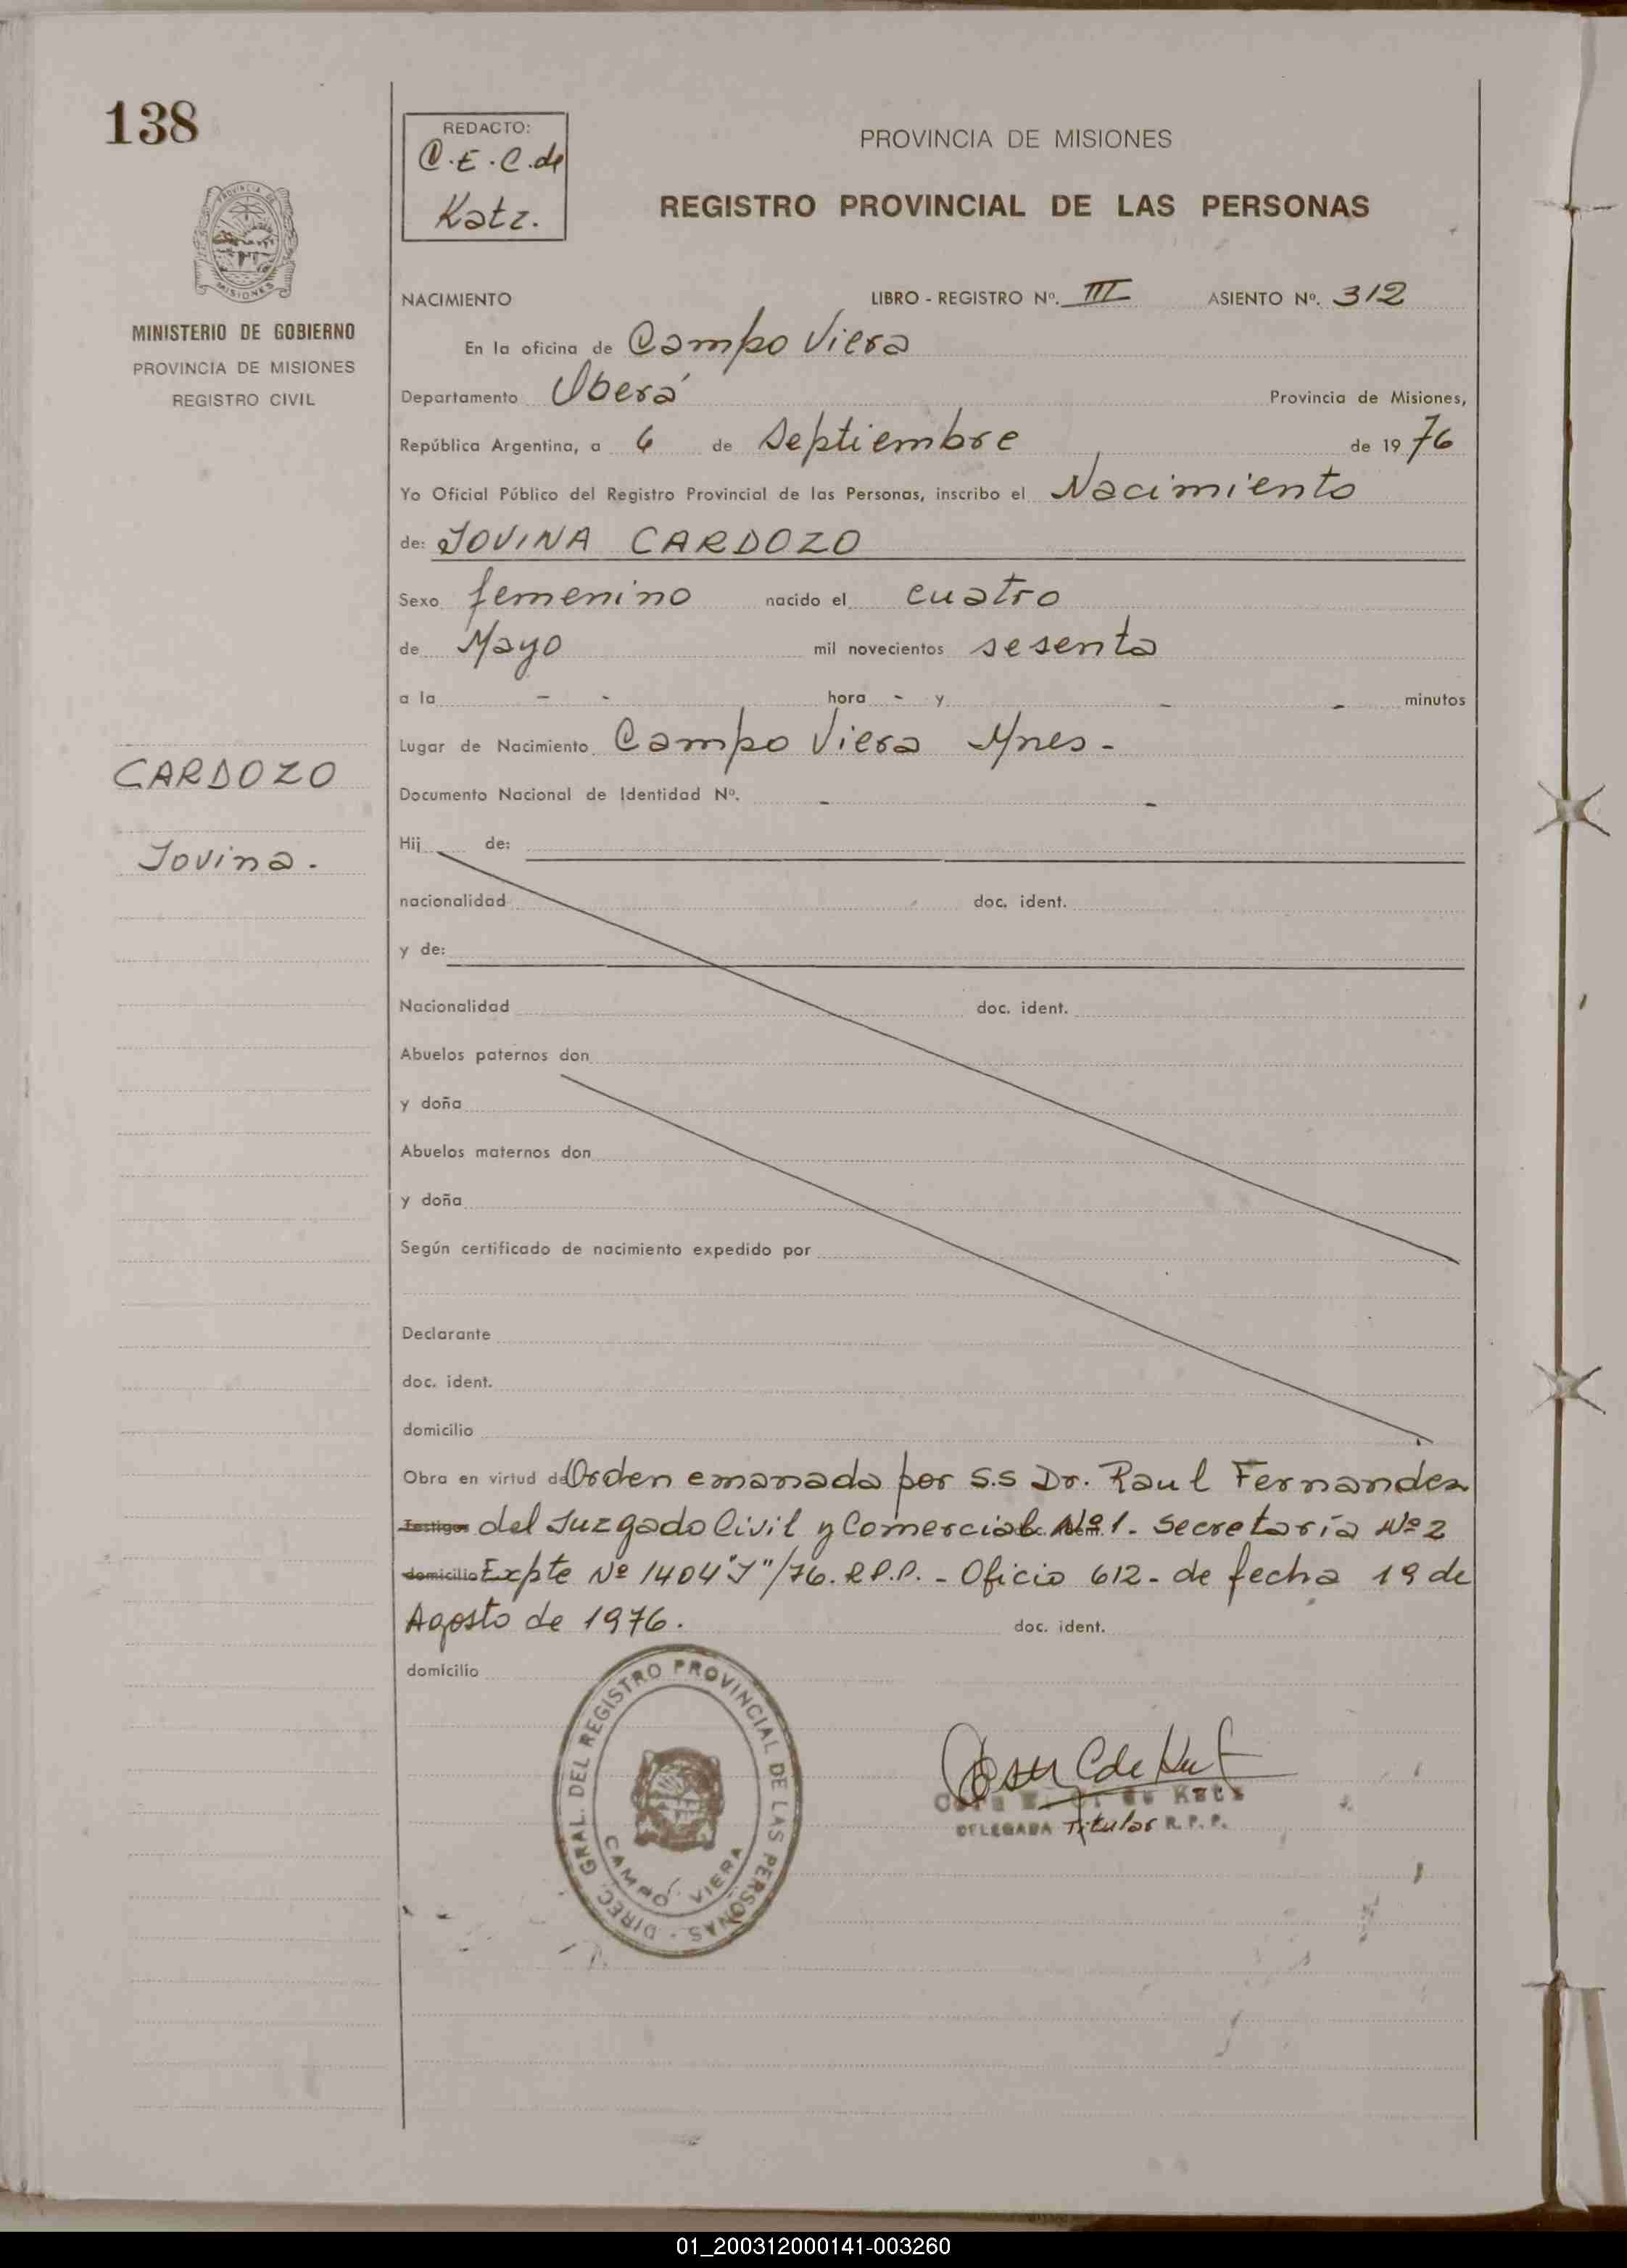 138
REDACTO:
C.E.C.de
Katz.
PROVINCIA DE MISIONES
REGISTRO PROVINCIAL DE LAS PERSONAS
PROVINCIA DE
MISIONES
MINISTERIO DE GOBIERNO
PROVINCIA DE MISIONES
REGISTRO CIVIL
NACIMIENTO LIBRO - REGISTRO Nº. III ASIENTO Nº. 312
En la oficina de Campo Viera
Departamento Oberá Provincia de Misiones,
República Argentina, a 6 de Septiembre de 1976
Yo Oficial Público del Registro Provincial de las Personas, inscribo el Nacimiento
de: JOVINA CARDOZO
Sexo femenino nacido el cuatro
de Mayo mil novecientos sesenta
a la - - hora - y - - minutos
Lugar de Nacimiento Campo Viera Mnes-
CARDOZO
Jovina.
Documento Nacional de Identidad Nº. - -
Hij de:
nacionalidad doc. ident.
y de:
Nacionalidad doc. ident.
Abuelos paternos don
y doña
Abuelos maternos don
y doña
Según certificado de nacimiento expedido por
Declarante
doc. ident.
domicilio
Obra en virtud de Orden emanada por S.S Dr. Raul Fernandez
Testigos del Juzgado Civil y Comercial Nº 1. Secretaría Nº 2
domicilio Expte Nº 1404"J"/76. R.P.P. - Oficio 612- de fecha 19 de
Agosto de 1976. doc. ident.
domicilio
DIREC. GRAL. DEL REGISTRO PROVINCIAL DE LAS PERSONAS -
CAMPO VIERA
de Katz
DELEGADA Titular R. P. P.
01_200312000141-003260